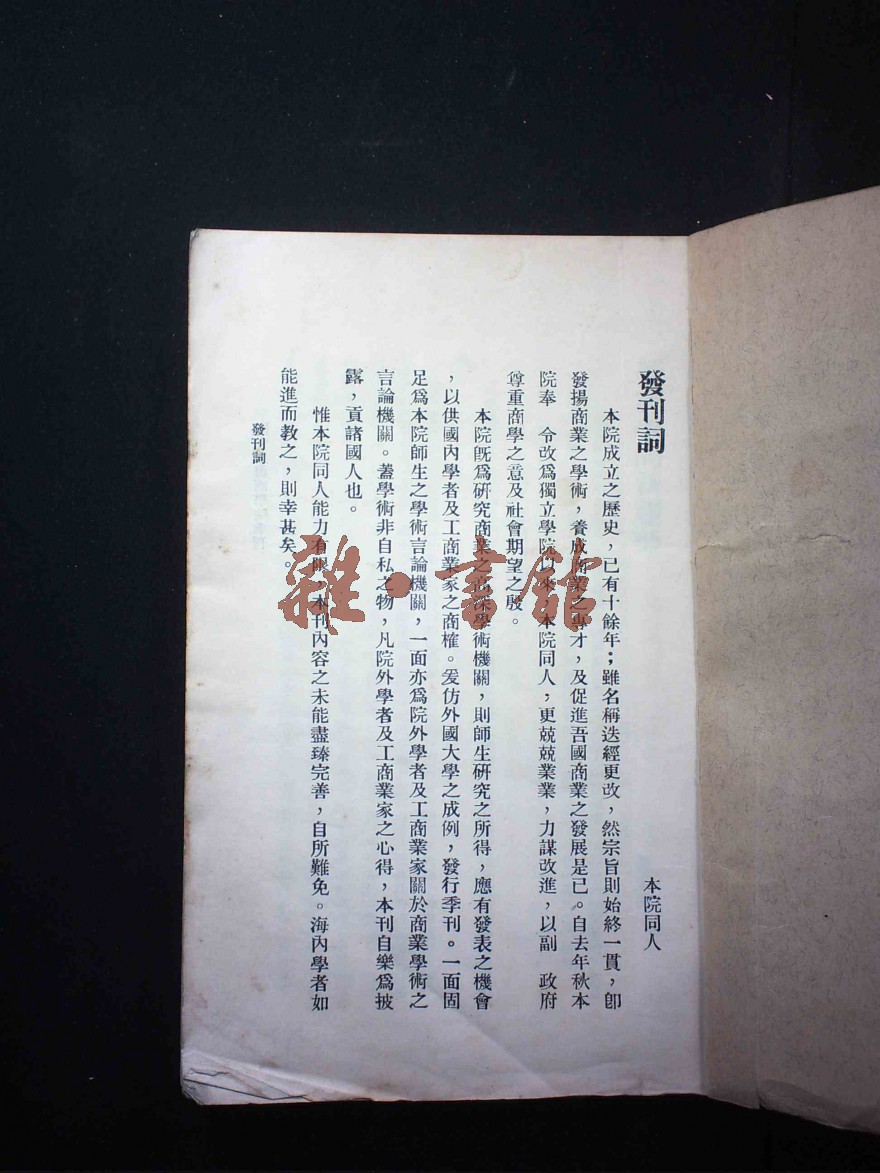 發刊詞
本院同人
本院成立之歷史，已有十餘年；雖名稱迭經更改，然宗旨則始終一貫，卽
發揚商業之學術，養成商業之專才，及促進吾國商業之發展是已。自去年秋本
院奉　令改爲獨立學院以來，本院同人，更兢兢業業，力謀改進，以副　政府
尊重商學之意及社會期望之殷。
本院旣爲研究商業之高深學術機關，則師生研究之所得，應有發表之機會
，以供國內學者及工商業家之商榷。爰仿外國大學之成例，發行季刊。一面固
足爲本院師生之學術言論機關，一面亦爲院外學者及工商業家關於商業學術之
言論機關。蓋學術非自私之物，凡院外學者及工商業家之心得，本刊自樂爲披
露，貢諸國人也。
惟本院同人能力有限，本刊內容之未能盡臻完善，自所難免。海內學者如
能進而教之，則幸甚矣。
發刊詞
雜·書館